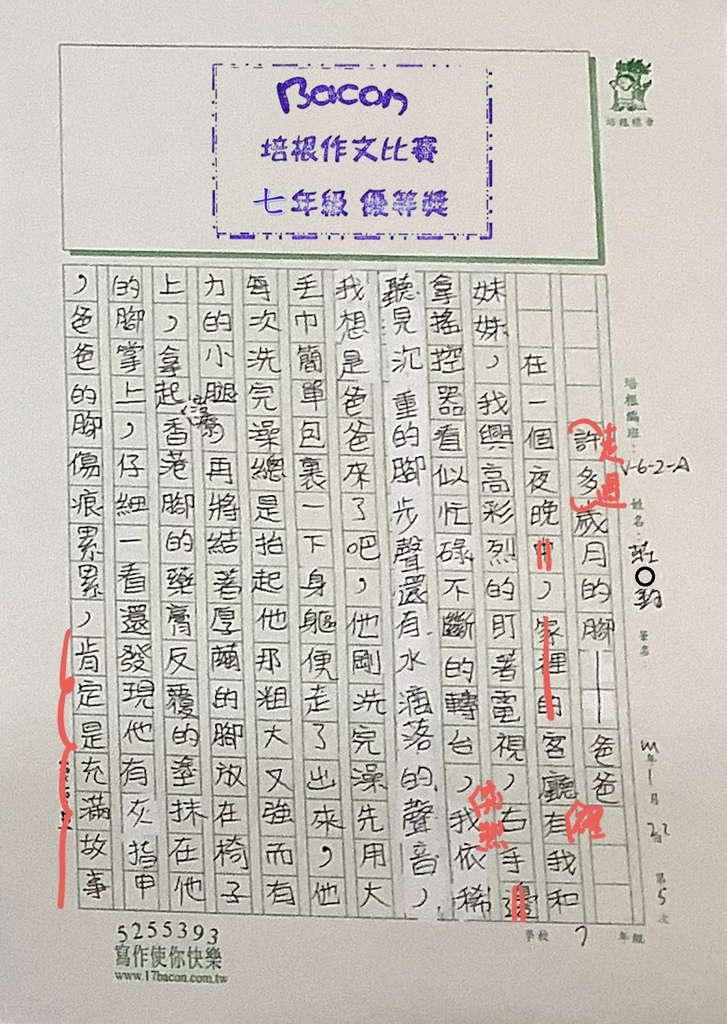 Bacon
培根作文比賽
七年級 優等獎
培根編班：
V-6-2-A
姓名：
筆名：
年1月22日
第5次
走過
許多歲月的腳——爸爸
在一個夜晚中，家裡的客廳有我和
妹妹，我興高彩烈的盯著電視，右手邊
拿搖控器看似忙碌不斷的轉台，我依稀
聽見沉重的腳步聲還有水滴落的聲音，
我想是爸爸來了吧，他剛洗完澡先用大
毛巾簡單包裹一下身軀便走了出來，他
每次洗完澡總是抬起他那粗大又強而有
力的小腿，再將結著厚繭的腳放在椅子
上，拿起香港腳的藥膏反覆的塗抹在他
的腳掌上，仔細一看還發現他有灰指甲
，爸爸的腳傷痕累累，肯定是充滿故事
5255393
寫作使你快樂
www.17bacon.com.tw
學校 7 年級